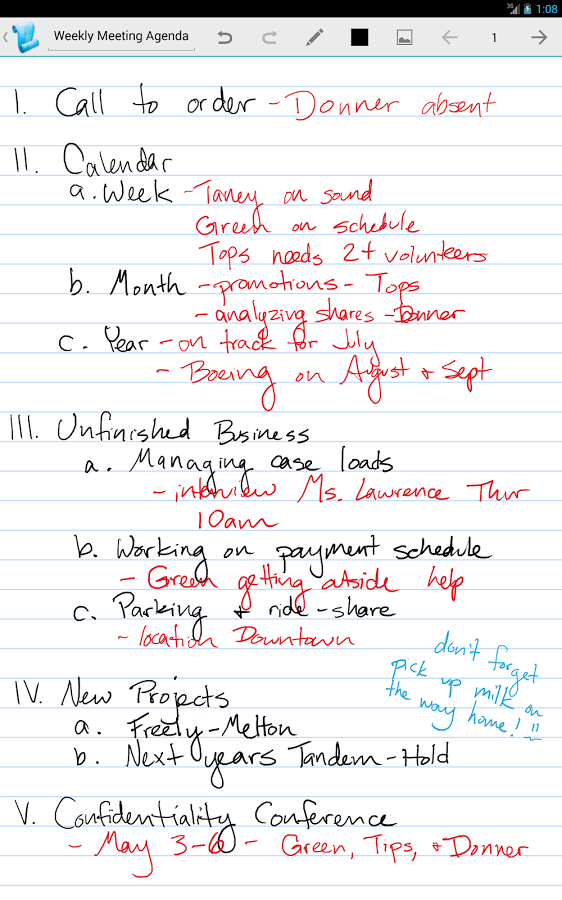 3G 1:08
Weekly Meeting Agenda 1
I. Call to order - Donner absent
II. Calendar
a. Week - Taney on sound
Green on schedule
Tops needs 2+ volunteers
b. Month - promotions - Tops
- analyzing shares - Donner
c. Year - on track for July
- Boeing on August & Sept
III. Unfinished Business
a. Managing case loads
- interview Ms. Lawrence Thur
10am
b. Working on payment schedule
- Green getting outside help
c. Parking & ride-share
- location Downtown
don't forget
pick up milk on
the way home! !!
IV. New Projects
a. Freely-Melton
b. Next years Tandem-Hold
V. Confidentiality Conference
- May 3-6 - Green, Tips, & Donner